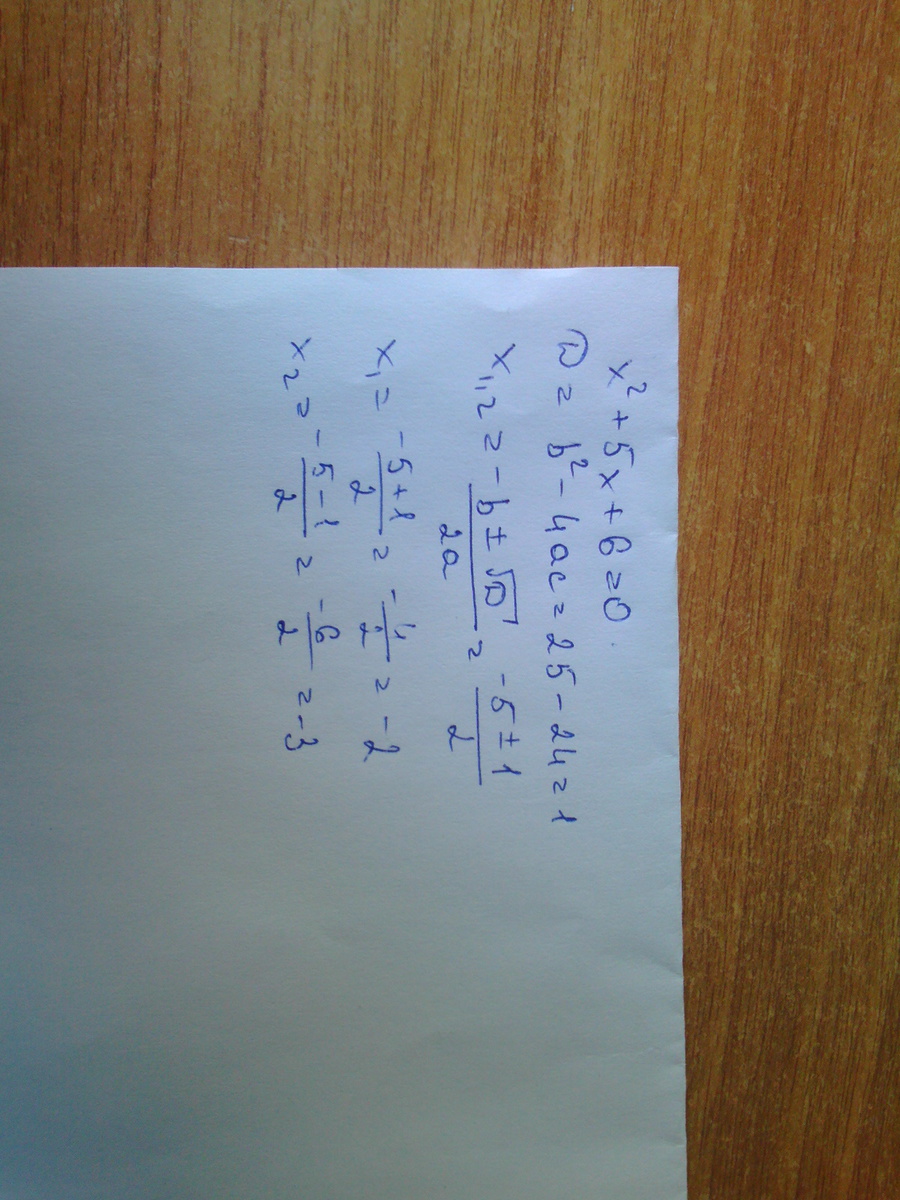 x² + 5x + 6 = 0.
D = b² - 4ac = 25 - 24 = 1
x₁,₂ = (-b ± √D)/(2a) = (-5 ± 1)/2
x₁ = (-5 + 1)/2 = (-4)/2 = -2
x₂ = (-5 - 1)/2 = (-6)/2 = -3